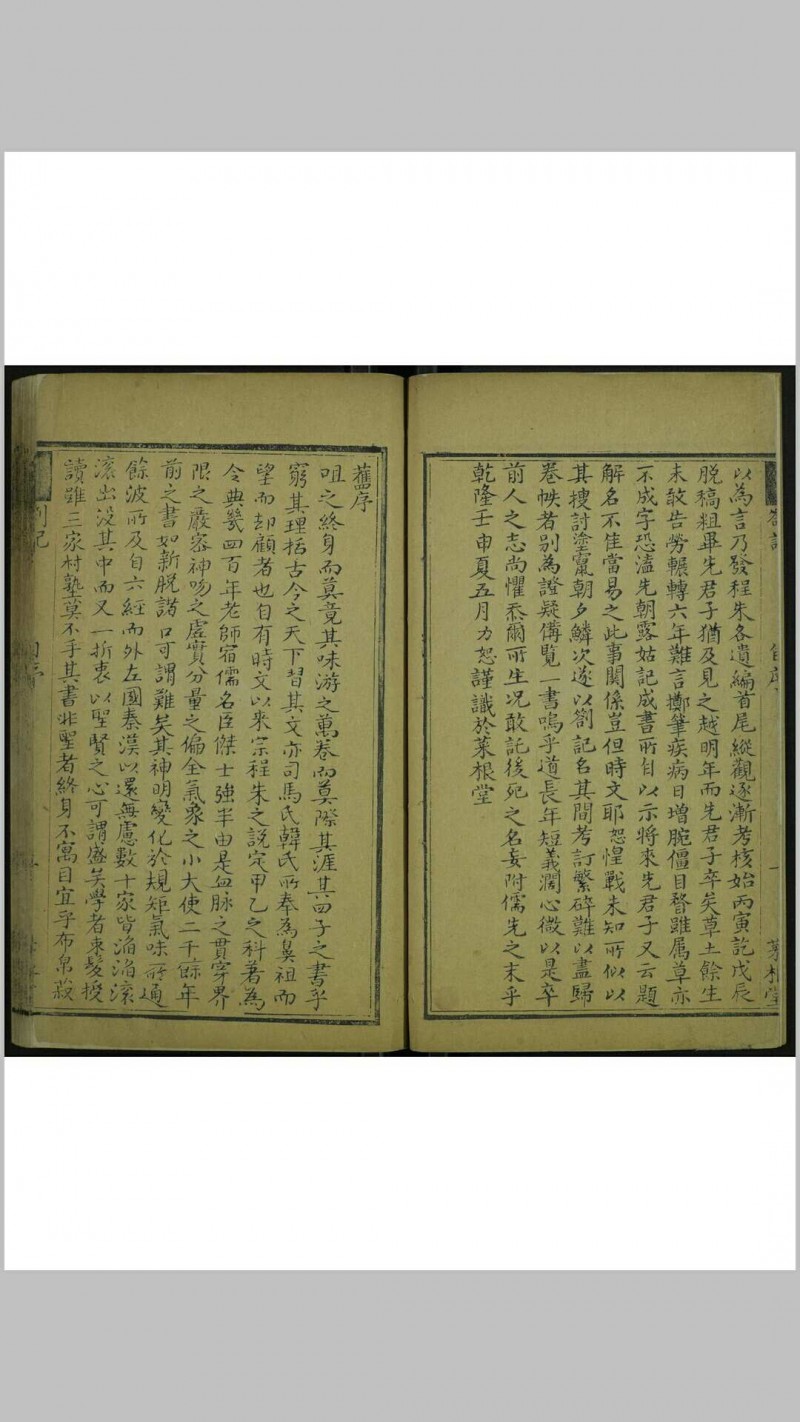 劄記 自序 一 菜根堂
以為言乃發程朱各遺編首尾縱觀逐漸考核始丙寅訖戊辰
脫稿粗畢先君子猶及見之越明年而先君子卒矣草土餘生
未敢告勞輾轉六年難言擲筆疾病日增腕僵目瞀雖属草亦
不成字恐溘先朝露姑記成書所自以示將來先君子又云題
解名不佳當易之此事關係豈但時文耶恕惶戰未知所似以
其捜討塗竄朝夕鱗次遂以劄記名其間考訂繁碎難以盡歸
卷帙者别為證疑俻覧一書嗚乎道長年短義濶心微以是卒
前人之志尚懼忝爾所生况敢託後死之名妄附儒先之末乎
乾隆壬申夏五月力恕謹識於菜根堂
舊序
咀之終身而莫竟其味游之萬卷而莫際其涯其四子之書乎
窮其理括古今之天下習其文亦司馬氏韓氏所奉為鼻祖而
望而却顧者也自有時文以來宗程朱之說定甲乙之科著為
令典幾四百年老師宿儒名臣傑士強半由是血脉之貫穿界
限之嚴容神吻之虛實分量之偏全氣象之小大使二千餘年
前之書如新脫諸口可謂難矣其神明變化於規矩氣味所通
餘波所及自六經而外左國秦漢以還無慮數十家皆滔滔滚
滚出没其中而又一折衷以聖賢之心可謂盛矣學者束髮授
讀雖三家村塾莫不手其書非聖者終身不寓目宜乎布帛菽
劄記